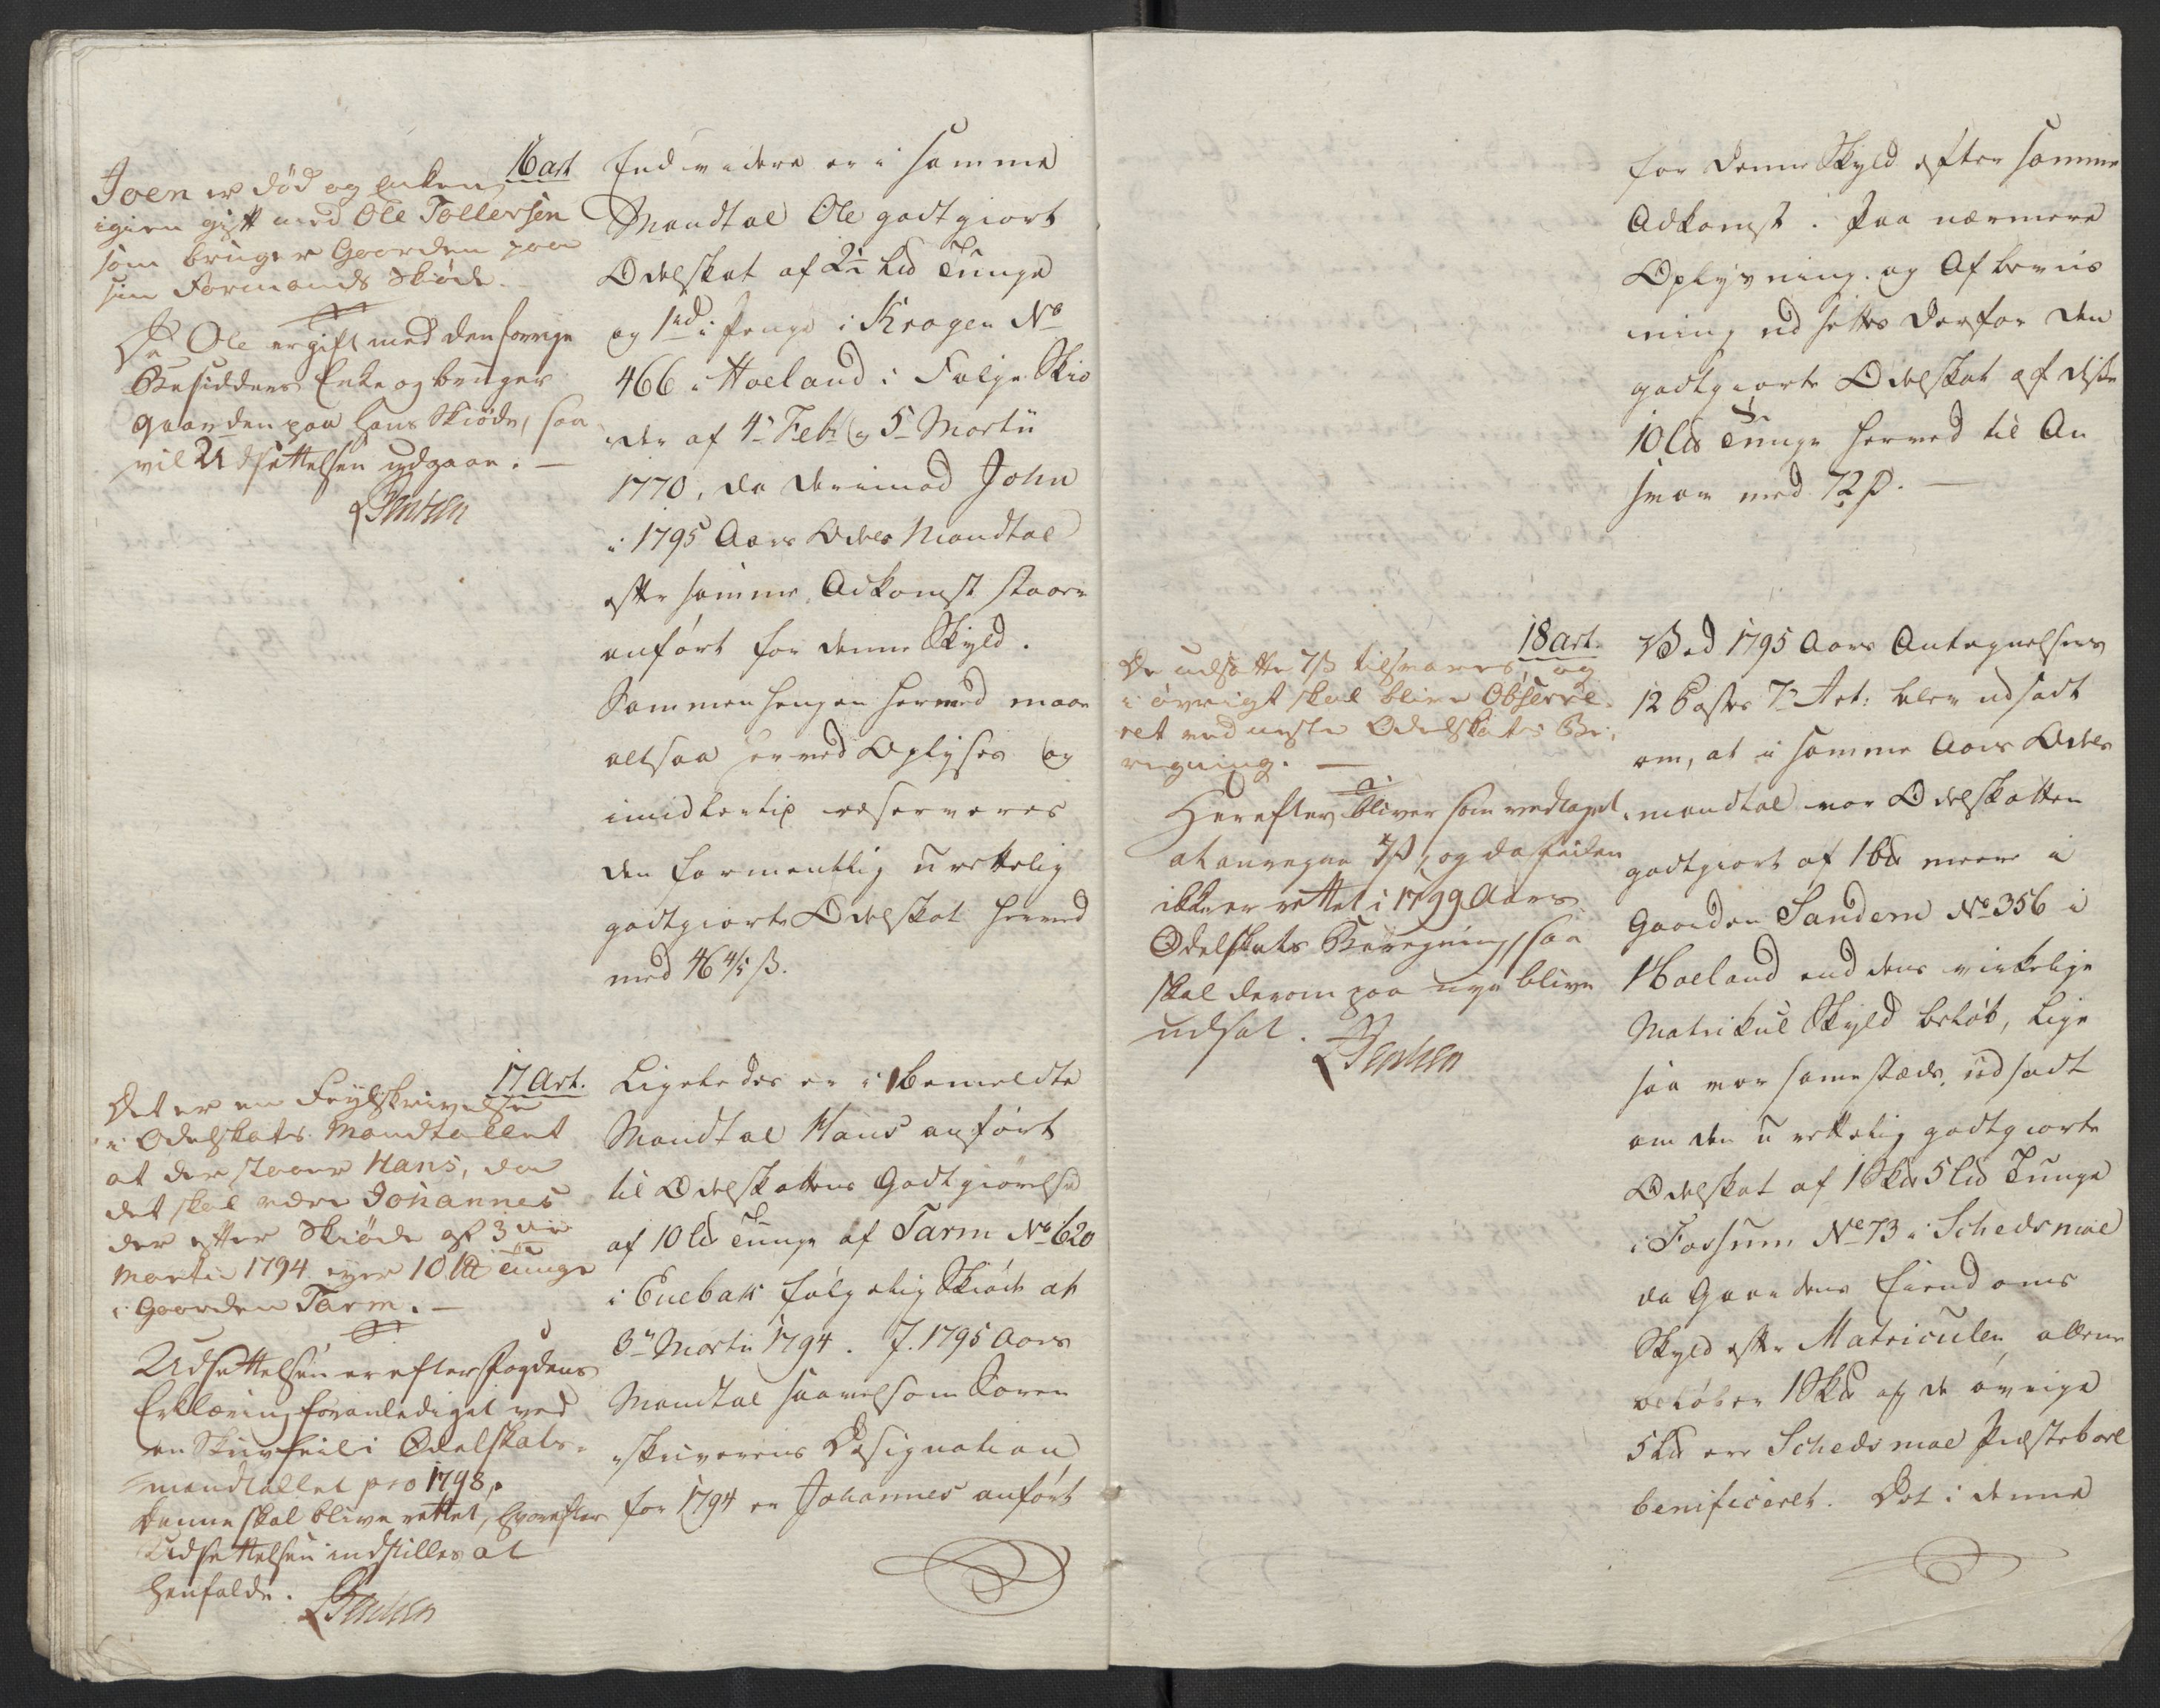 16 art
Joen er död og enken
igien gift med Ole Tollersen
som bruger Gaarden paa
sin Formands Skiöde.
Da Ole er gift med den forrige
Besidders Enke og bruger
gaarden paa hans Skiöde, saa
vil Udsettelsen udgaae. —
Endvidere er i samme
Mandtal Ole godtgiort
Odelskat af 2½ L℔ Tunge
og 1 i Penge i Kragen No
466 i Høeland i Følge Skiö
der af 4de Febr og 5te Martii
1770, da derimod John
i 1795 Aars Odels Mandtal
efter samme Adkomst staaer
anfört for denne Skyld.
Sammenhengen hermed maae
altsaa herved Oplyses og
imidlertid reserveres
den formentlig urettelig
godtgiorte Odelskat herved
med 46 4/5 ß.
17 Art.
Det er en Feylskrivelse
i Odelskats Mandtallet
at der staaer Hans, da
det skal være Johannes
der efter Skiöde af 3die
Martii 1794 eyer 10 L℔ Tunge
i Gaarden Tarm. —
Udsettelsen er efter Fogdens
Erklæring foranlediget ved
en Skrivfeil i Odelskats-
mandtallet pro 1798,
denne skal blive rettet, hvorefter
Udsettelsen indstilles at
henfalde.
Ligeledes er i bemeldte
Mandtal Hans anfört
til Odelskattens Godtgiörelse
af 10 L℔ Tunge af Tarm No 620
i Enebak følgelig Skiöde at
3de Martii 1794. J. 1795 Aars
Mandtal saavelsom Soren
skriverens Designation
for 1794 er Johannes anfört
for denne Skyld efter samme
Adkomst. Paa nærmere
Oplysning og Afbeviis
ning udsettes derfor den
godtgiorte Odelskat af disse
10 L℔ Tunge herved til An
svar med 72 ß. —
18 art.
De udsatte 7 ß tilsvares, og
i övrigt skal blive Observe-
ret ved neste Odelskats Be-
regning. —
Herefter bliver som vedtaget
at antegne 7 ß, og da Feilen
ikke er rettet i 1799 Aars
Odelskats Beregning, saa
skal derom paa nye blive
udsat.
Ved 1795 Aars Antegnelsers
12 Postes 7de Art: blev udsadt
om, at i samme Aars Odels
mandtal var Odelskatten
godtgiort af 1 meere i
Gaarden Sandem No 356 i
Høeland end dens virkelige
Matrikul Skyld belöb, lige
saa var samestæds udsadt
om den urettelig godtgiorte
Odelskat af 1 Sk℔ 5 L℔ Tunge
i Fossum No 73 i Schedsmoe
da Gaardens Eiendoms
Skyld efter Matriculen allene
belöber 1 Sk℔ og de övrige
5 L℔ ere Schedsmoe Præstebord
beneficeret. Det i denne